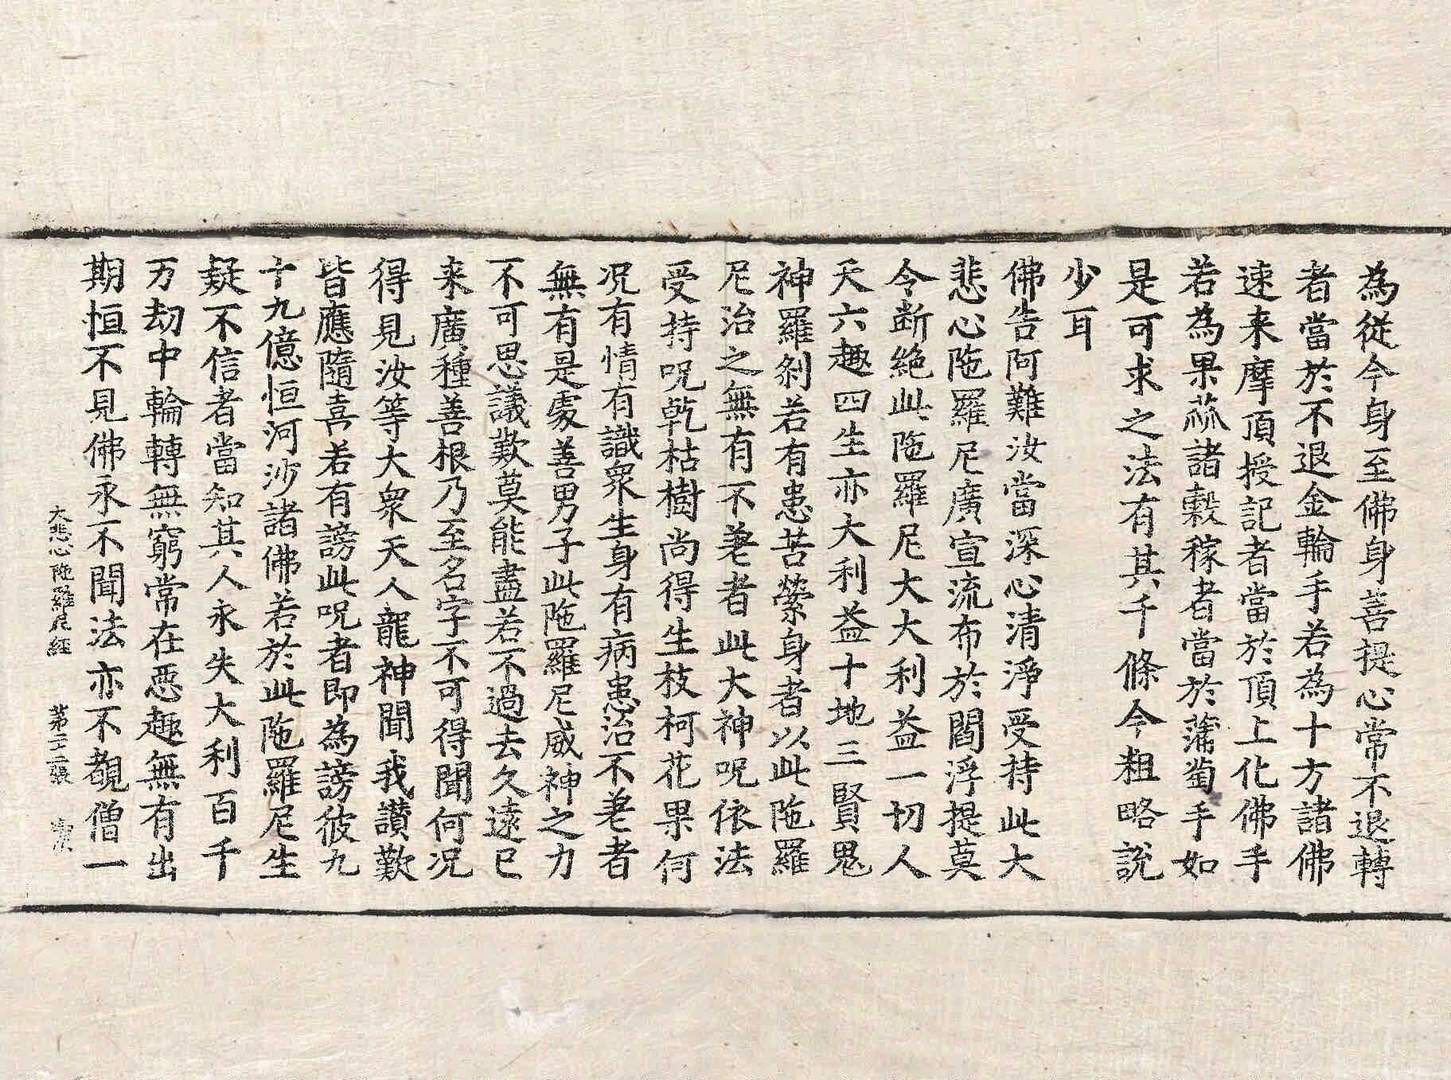 為從今身至佛身菩提心常不退轉
者當於不退金輪手若為十方諸佛
速来摩頂授記者當於頂上化佛手
若為果蓏諸穀稼者當於蒲萄手如
是可求之法有其千條今粗略說
少耳
佛告阿難汝當深心清淨受持此大
悲心陁羅尼廣宣流布於閻浮提莫
令断絶此陁羅尼大大利益一切人
天六趣四生亦大利益十地三賢鬼
神羅剎若有患苦縈身者以此陁羅
尼治之無有不差者此大神呪依法
受持呪乾枯樹尚得生枝柯花果何
况有情有識衆生身有病患治不差者
無有是處善男子此陁羅尼威神之力
不可思議歎莫能盡若不過去久遠已
来廣種善根乃至名字不可得聞何况
得見汝等大衆天人龍神聞我讃歎
皆應隨喜若有謗此呪者即為謗彼九
十九億恒河沙諸佛若於此陁羅尼生
疑不信者當知其人永失大利百千
万劫中輪轉無窮常在惡趣無有出
期恒不見佛永不聞法亦不覩僧一
大悲心陁羅尼經 第二十二張